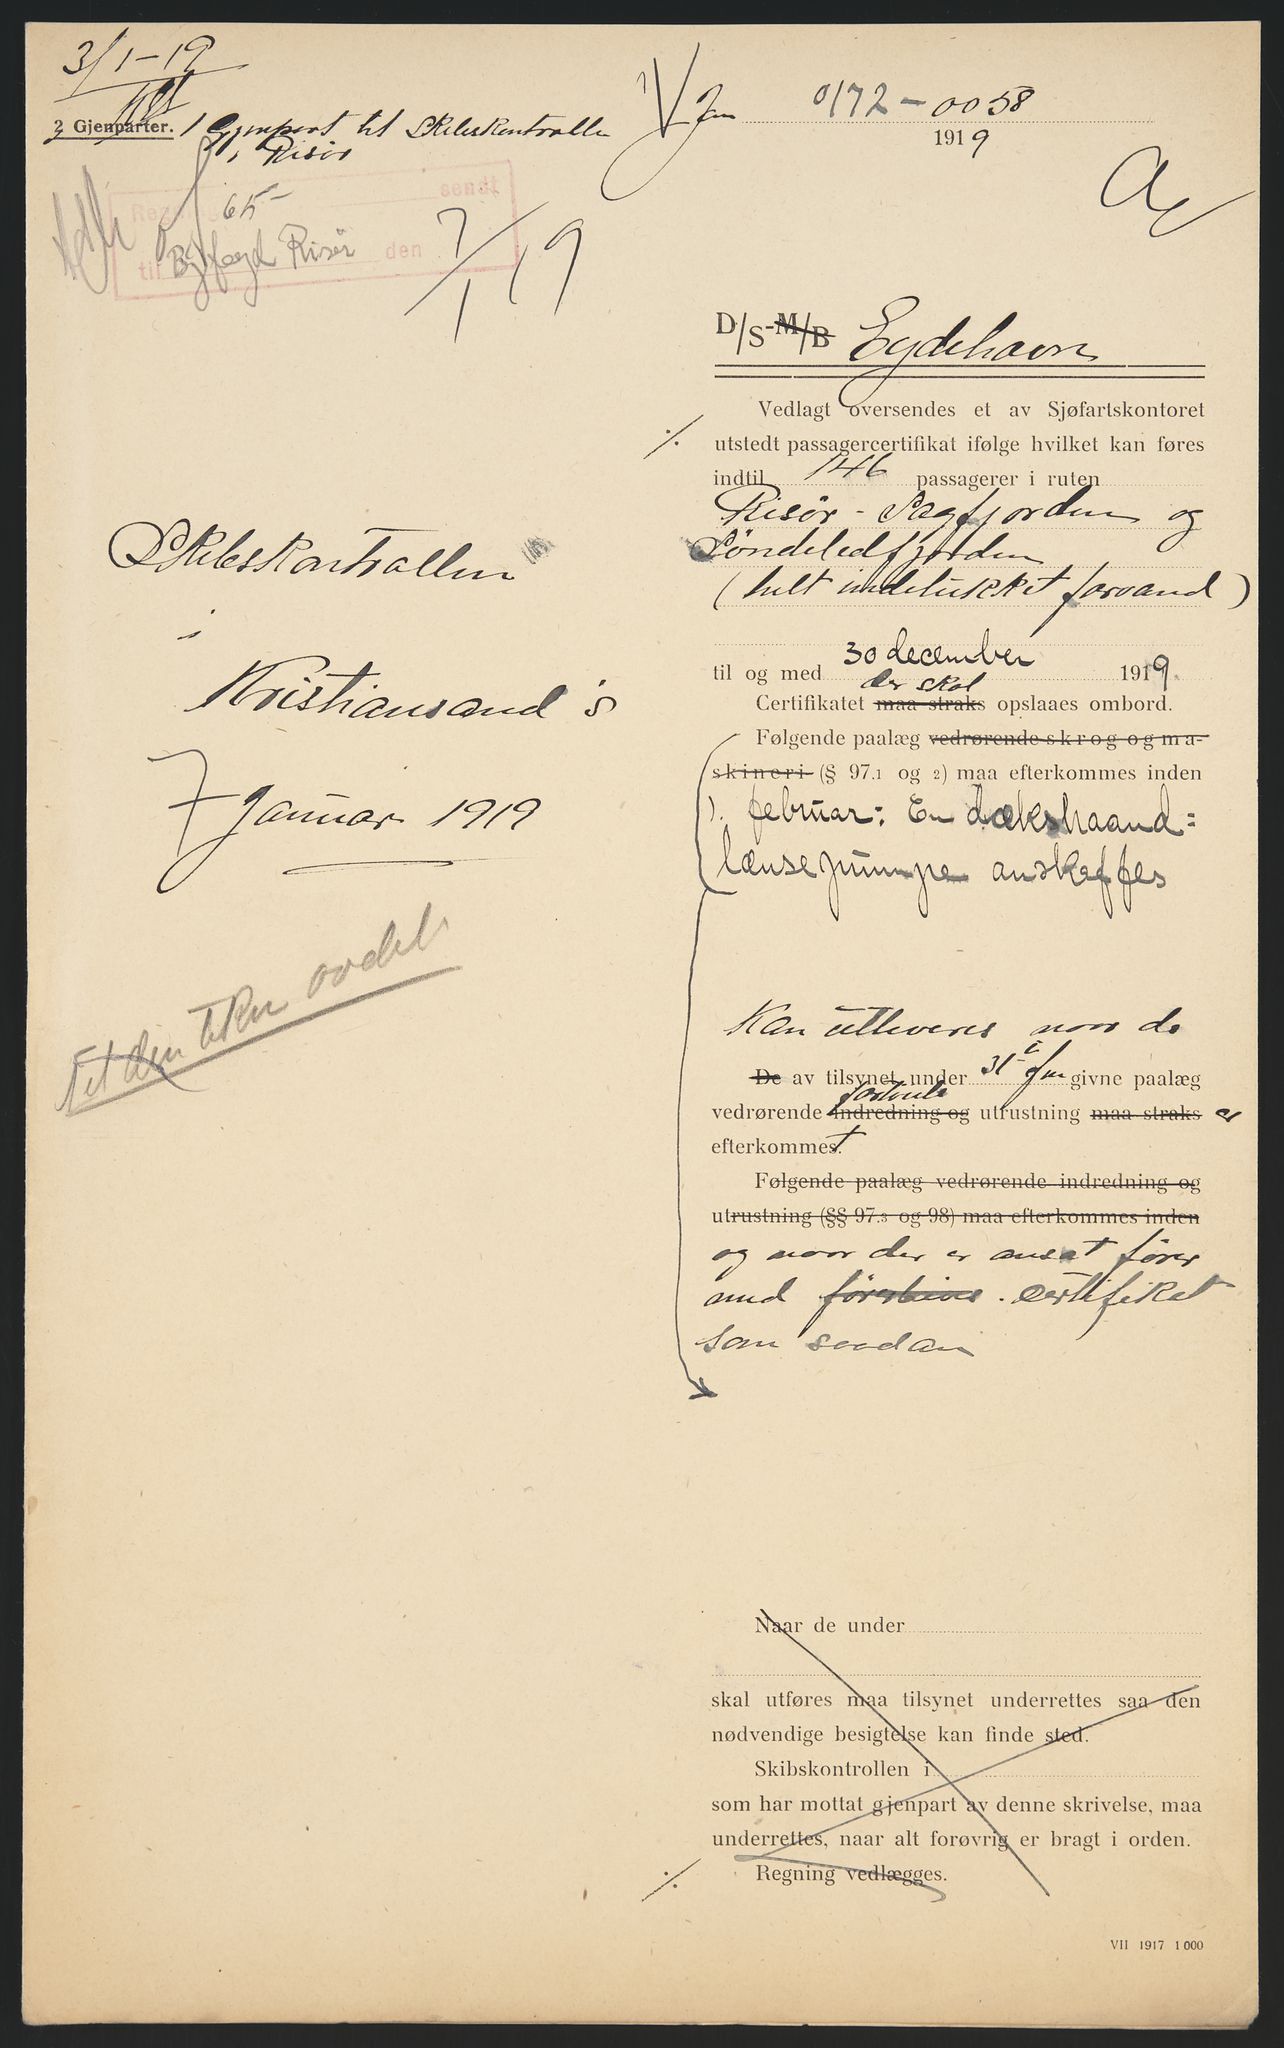 3/1-19
2 Gjenparter. 1 Gjenpart til Skibskontrollen
i Risør
Jnr 0172-0058
1919
Regning 65- sendt
til Byfogd Risør den 7/1 19
D/S-M/B Eydehavn
Vedlagt oversendes et av Sjøfartskontoret
utstedt passagercertifikat ifølge hvilket kan føres
indtil 146 passagerer i ruten
Risör - Sagfjorden og
Söndeledfjorden
(helt indelukket farvand)
til og med 30 december 1919.
der skal
Certifikatet maa straks opslaaes ombord.
Følgende paalæg vedrørende skrog og ma-
skineri (§ 97.1 og 2) maa efterkommes inden
1. februar: En dækshaand=
lænsepumpe anskaffes
Skibskontrollen
i
Kristiansand S
7 Januar 1919
Kan utleveres naar de
De av tilsynet under 31 f m givne paalæg
vedrørende indredning og utrustning maa straks er
efterkommet.
Følgende paalæg vedrørende indredning og
utrustning (§§ 97.3 og 98) maa efterkommes inden
og naar der er ansat fører
med certifikat
som saadan
Naar de under
skal utføres maa tilsynet underrettes saa den
nødvendige besigtelse kan finde sted.
Skibskontrollen i
som har mottat gjenpart av denne skrivelse, maa
underrettes, naar alt forøvrig er bragt i orden.
Regning vedlægges.
VII 1917 1 000